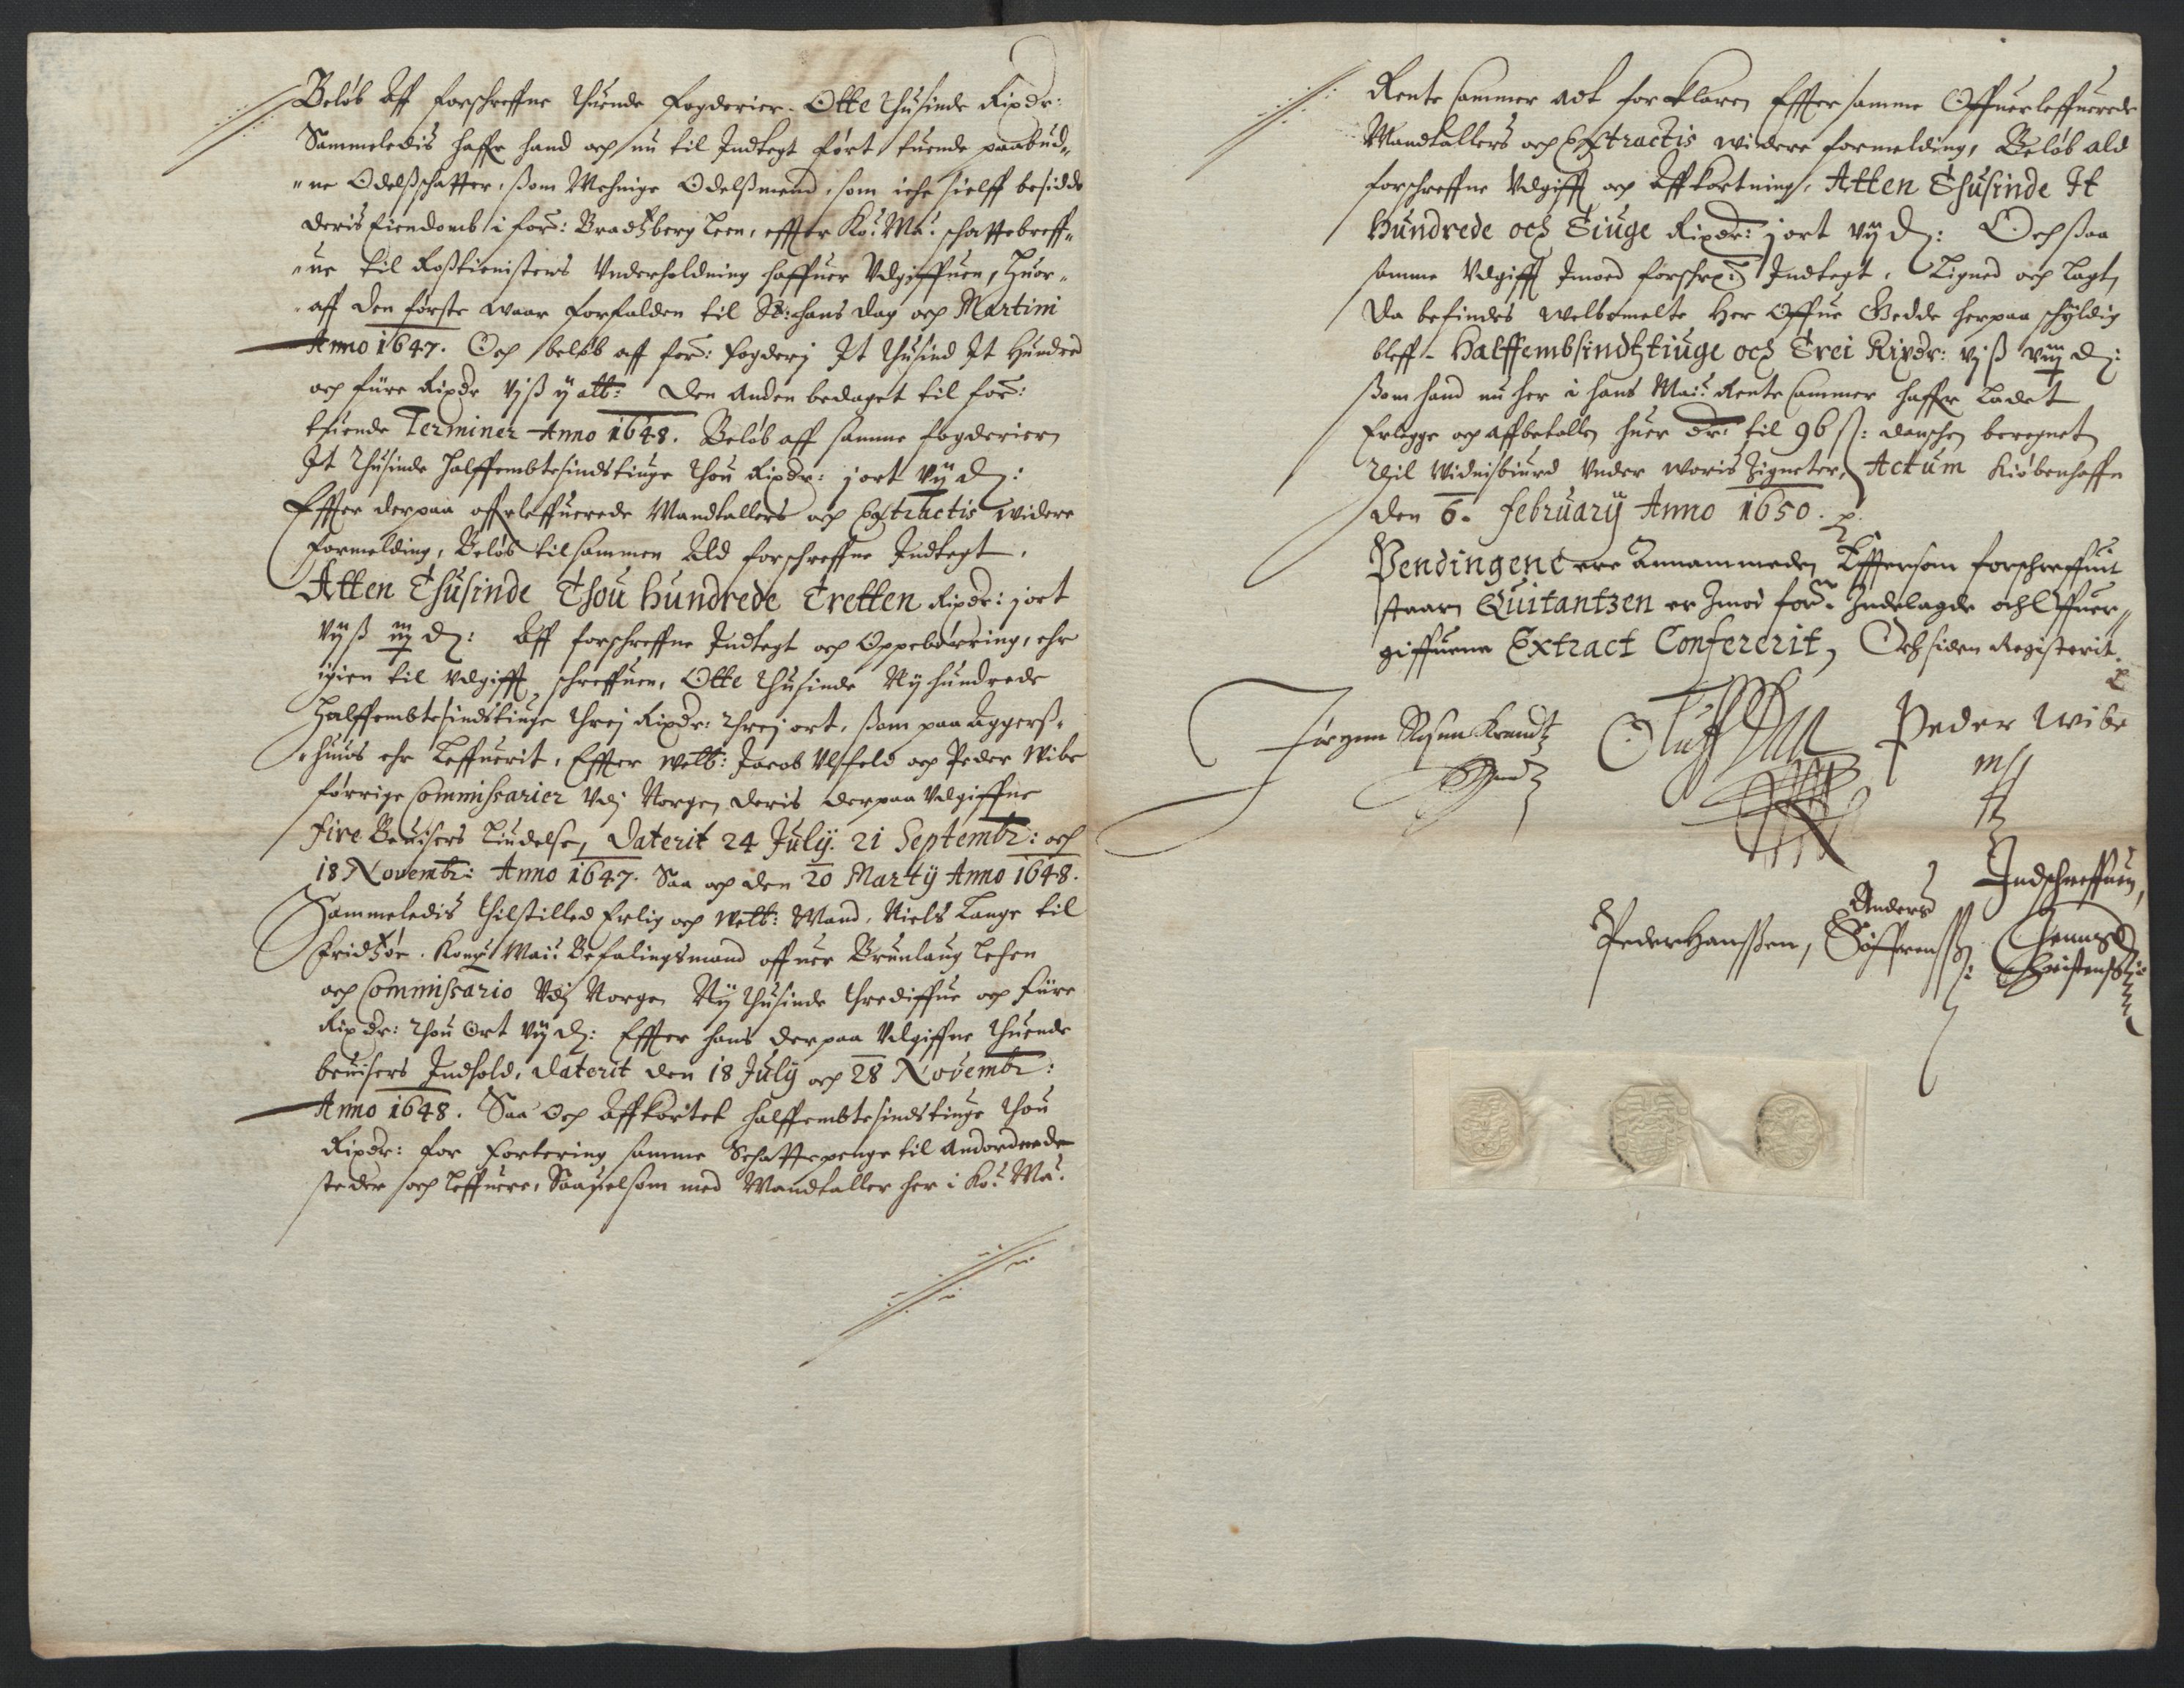 Beløb Aff forschreffne thuende fogderier. Otte thusinde Rixdr:
Sammeledis haffr hand och nu til Indtegt ført, tuende paabud„
„ne Odelsschatter, ßom Mehnige Odelßmend, som iche sielff besidde
deris Eiendomb i for: Bradtzberg Leen, effter Ko: Ma: schattebreff„
„ue til Roßtienistens Vnderholdning haffuer Vdgiffuen, Huor„
„aff den første waar forfalden til St: Hans dag och Martini
Anno 1647. Och beløb aff for: fogderj It thusind It Hundred
och füre Rixdr vjß ij alb: Den Anden bedaget til for:
thuende Terminer Anno 1648. Beløb aff samme fogderier
It thusinde halffembtesindstiuge thou Rixdr: j ort vij d:
Effter derpaa offrleffuerede Mandtallers och Extractis widere
formelding, Beløb tilsammen Ald forschreffne Indtegt.
Atten Thusinde Thou Hundrede Tretten Rixdr: j ort
vij ß iiij d: Aff forschreffne Indtegt och Oppebørring, ehr
igien til Vdgifft schreffuen, Otte thusinde Nij hundrede
Halffembtesindstiuge threj Rixdr: threj ort, ßom paa Aggerß„
„huus ehr Leffuerit, Effter welb: Jacob Vlfeld och Peder Wibe
førrige Commissarier Vdj Norgen deris derpaa Vdgiffne
fire Beuisers Liudelse, Daterit 24 Julij. 21 Septembr: och
18 Novembr: Anno 1647. Saa och den 20 Martij Anno 1648.
Sammeledis thilstilled Erlig och Welb: Mand, Niels Lange til
Fridtzøe. Kong: Mai: Befalingsmand offuer Brunlaug Lehen
och Commissario Vdj Norgen Nij thusinde thrediffue och füre
Rixdr: thou Ort vij d: Effter hans derpaa Vdgiffne thuende
beuisers Indhold, Daterit den 18 July och 28 Novembr:
Anno 1648. Saa Och Affkortet halffembtesindstiuge thou
Rixdr: for Fortering samme Schattepenge til Andordnede
steder och Leffuere, Saauelsom med Mandtaller her i Ko: Ma:
Rente Cammer adt forklare, Effter samme Offuerleffuerede
Mandtallers och Extractis widere formelding, Beløb ald
forschreffne Vdgifft och Affkortning, Atten Thusinde It
Hundrede och Tiuge Rixdr: j ort vij d: Och ßaa
samme Vdgifft Imoed forschr: Indtegt, Ligned och Lagt,
Da befindes welbemelte Her Offue Giedde herpaa schyldig
bleff – Halffembsindtztiuge och Trei Rixdr: vj ß viij d:
ßom hand nu her i hans Mai: Rente Cammer haffr Ladet
Erlegge och Affbetalle, huer dr: til 96 ß: danschen beregnet
Thil Widnisbiurd Vnder Woris Zigneter, Actum Kiøbenhaffn
den 6. february Anno 1650.
Pendingene ere Annammeden Effersom forschreffuit
staar, Quitantzen er Imod for: Indelagde och Offuer„
giffuene Extract Confererit, Och siden Registerit.
Jørgen Rosen Krandtz
Oluff
Peder Wibe
mp
Indschreffuen,
Peder Hanssen, Anders Søffrenss:
Christenss: